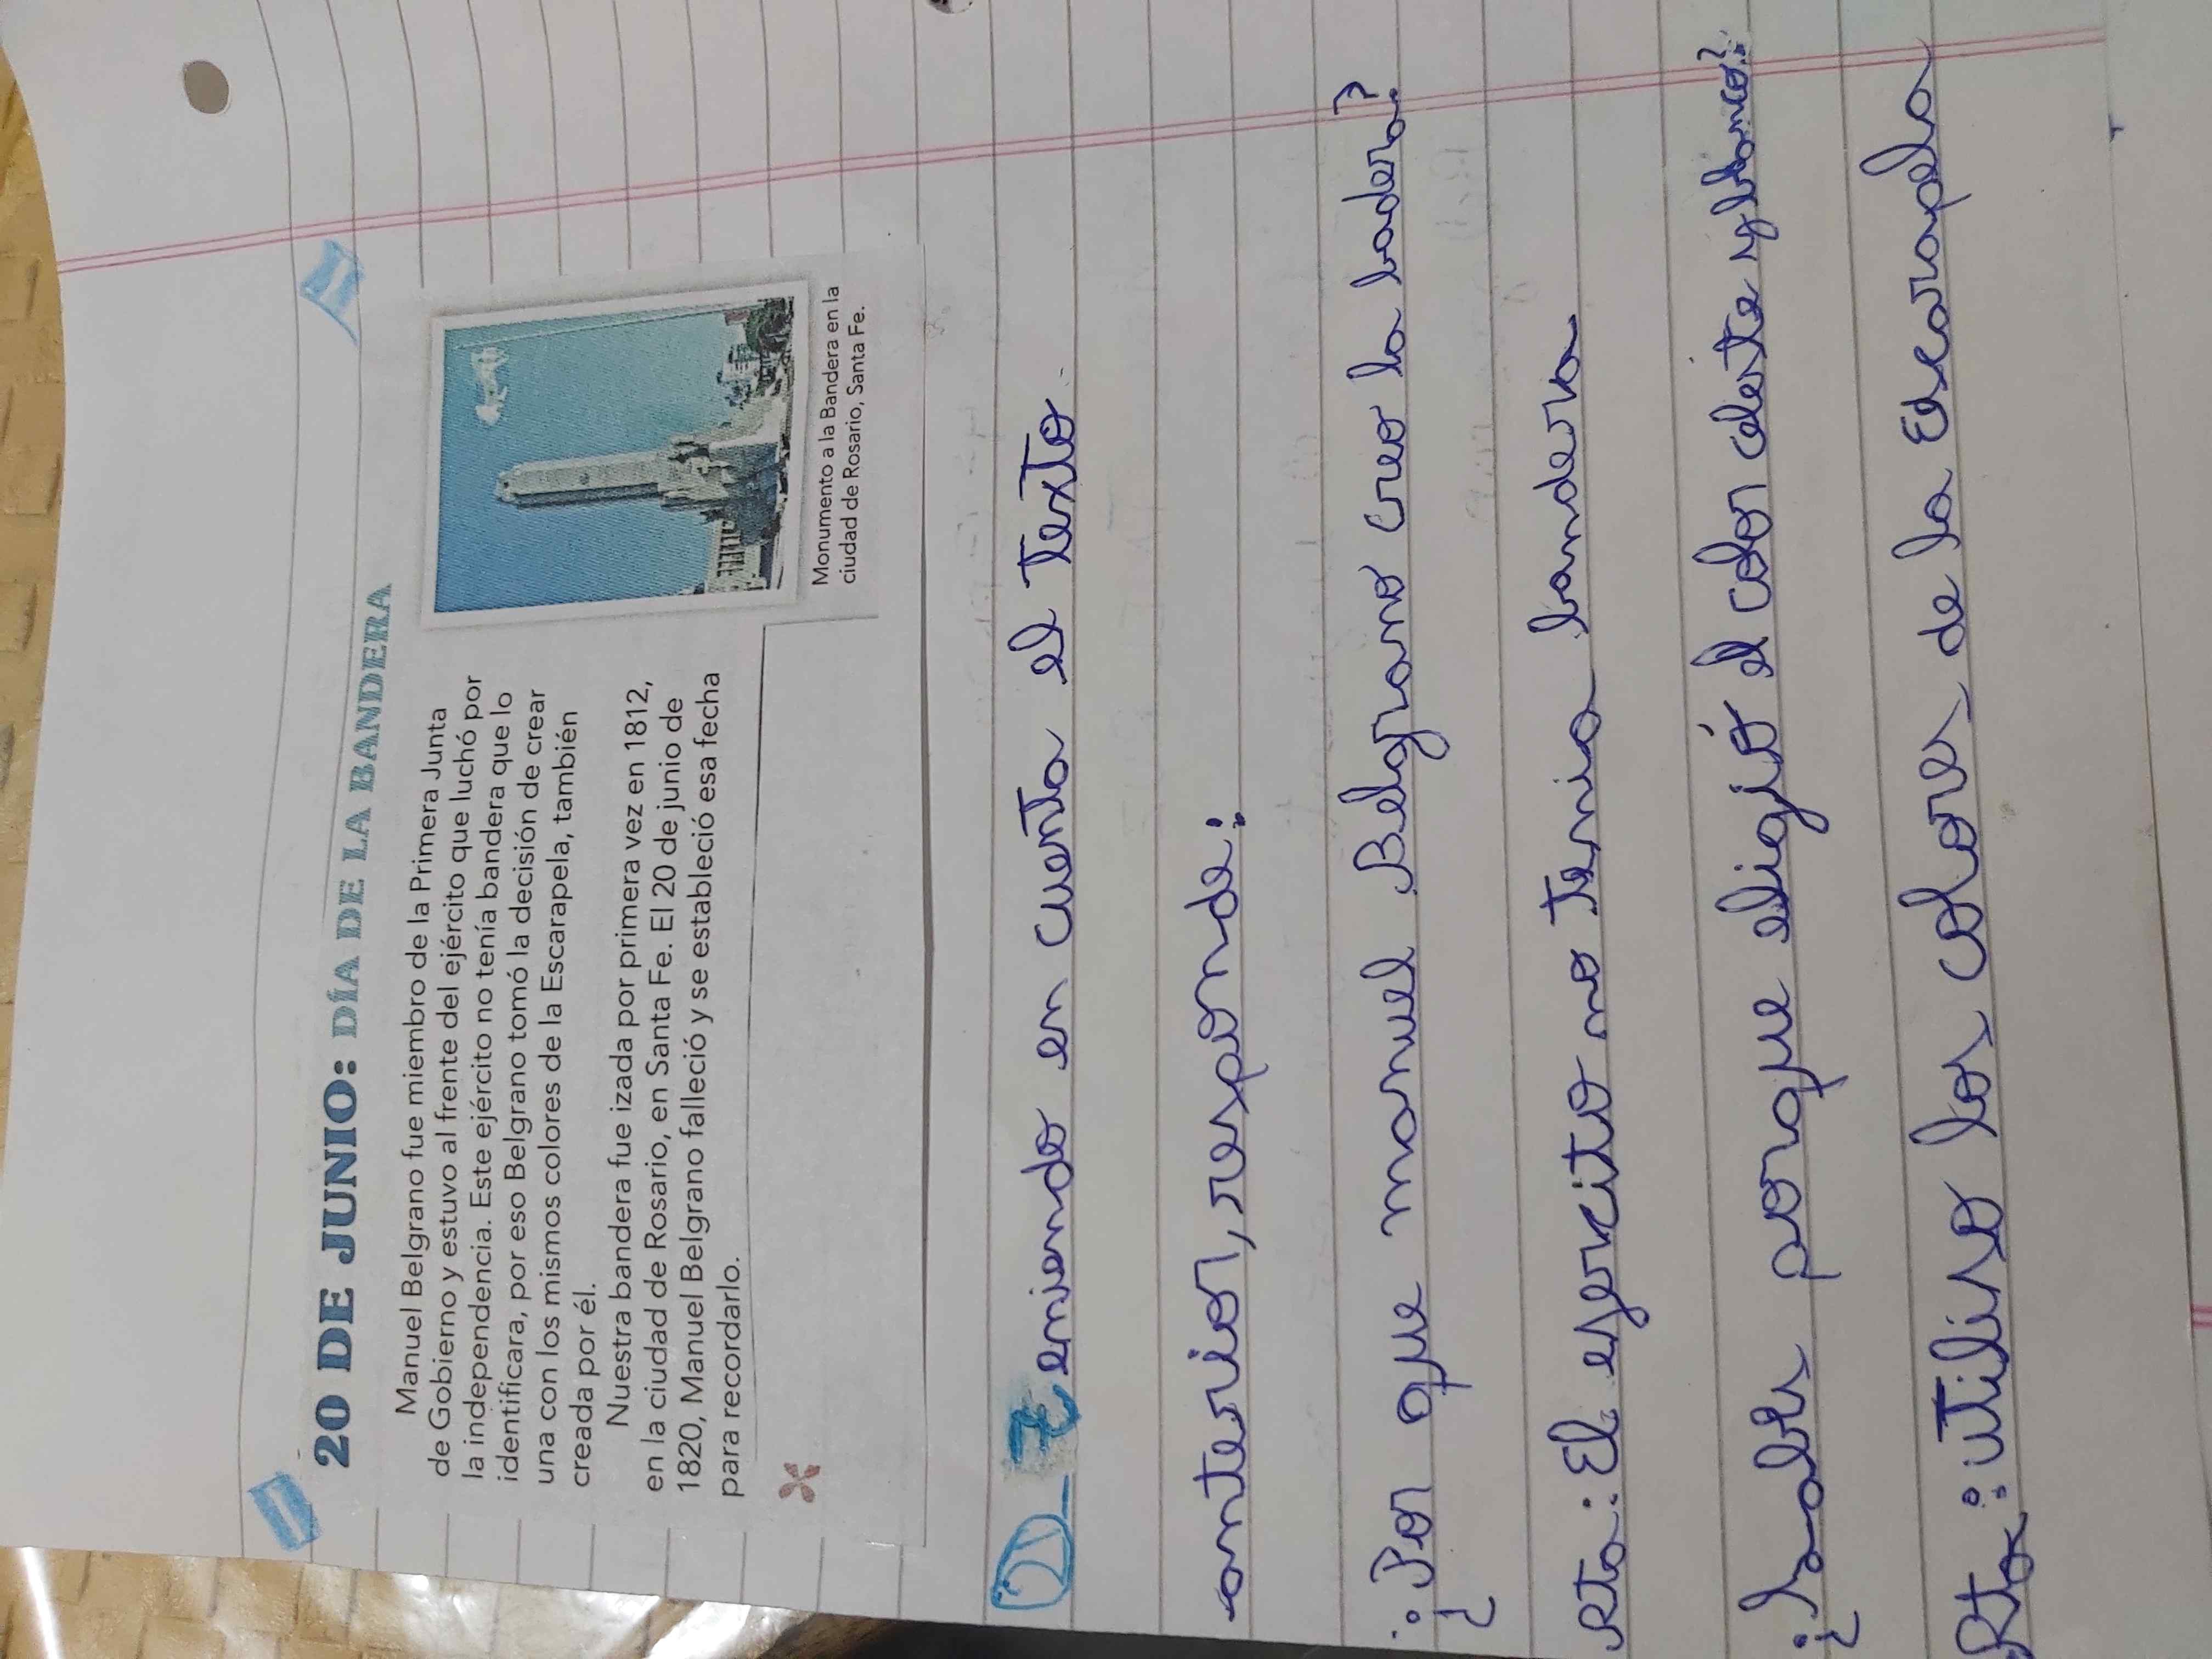 20 DE JUNIO: DÍA DE LA BANDERA
Manuel Belgrano fue miembro de la Primera Junta
de Gobierno y estuvo al frente del ejército que luchó por
la independencia. Este ejército no tenía bandera que lo
identificara, por eso Belgrano tomó la decisión de crear
una con los mismos colores de la Escarapela, también
creada por él.
Nuestra bandera fue izada por primera vez en 1812,
en la ciudad de Rosario, en Santa Fe. El 20 de junio de
1820, Manuel Belgrano falleció y se estableció esa fecha
para recordarlo.
Monumento a la Bandera en la
ciudad de Rosario, Santa Fe.
2)_ Teniendo en cuenta el texto
anterior, responde:
¿Por que manuel Belgrano creo la badera?
Rta: El egercito no tenia bandera
¿Sabes porque eligió el color celeste y blanco?
Rta: utiliso los colores de la Escarapela